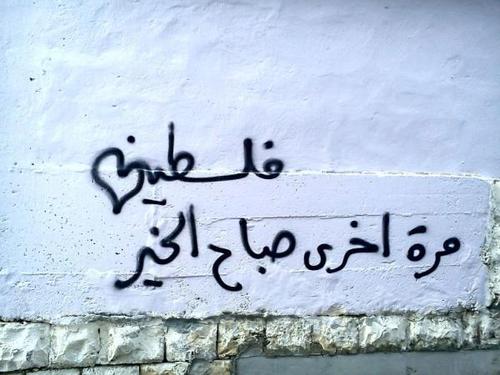 فلسطين
مرة اخرى صباح الخير